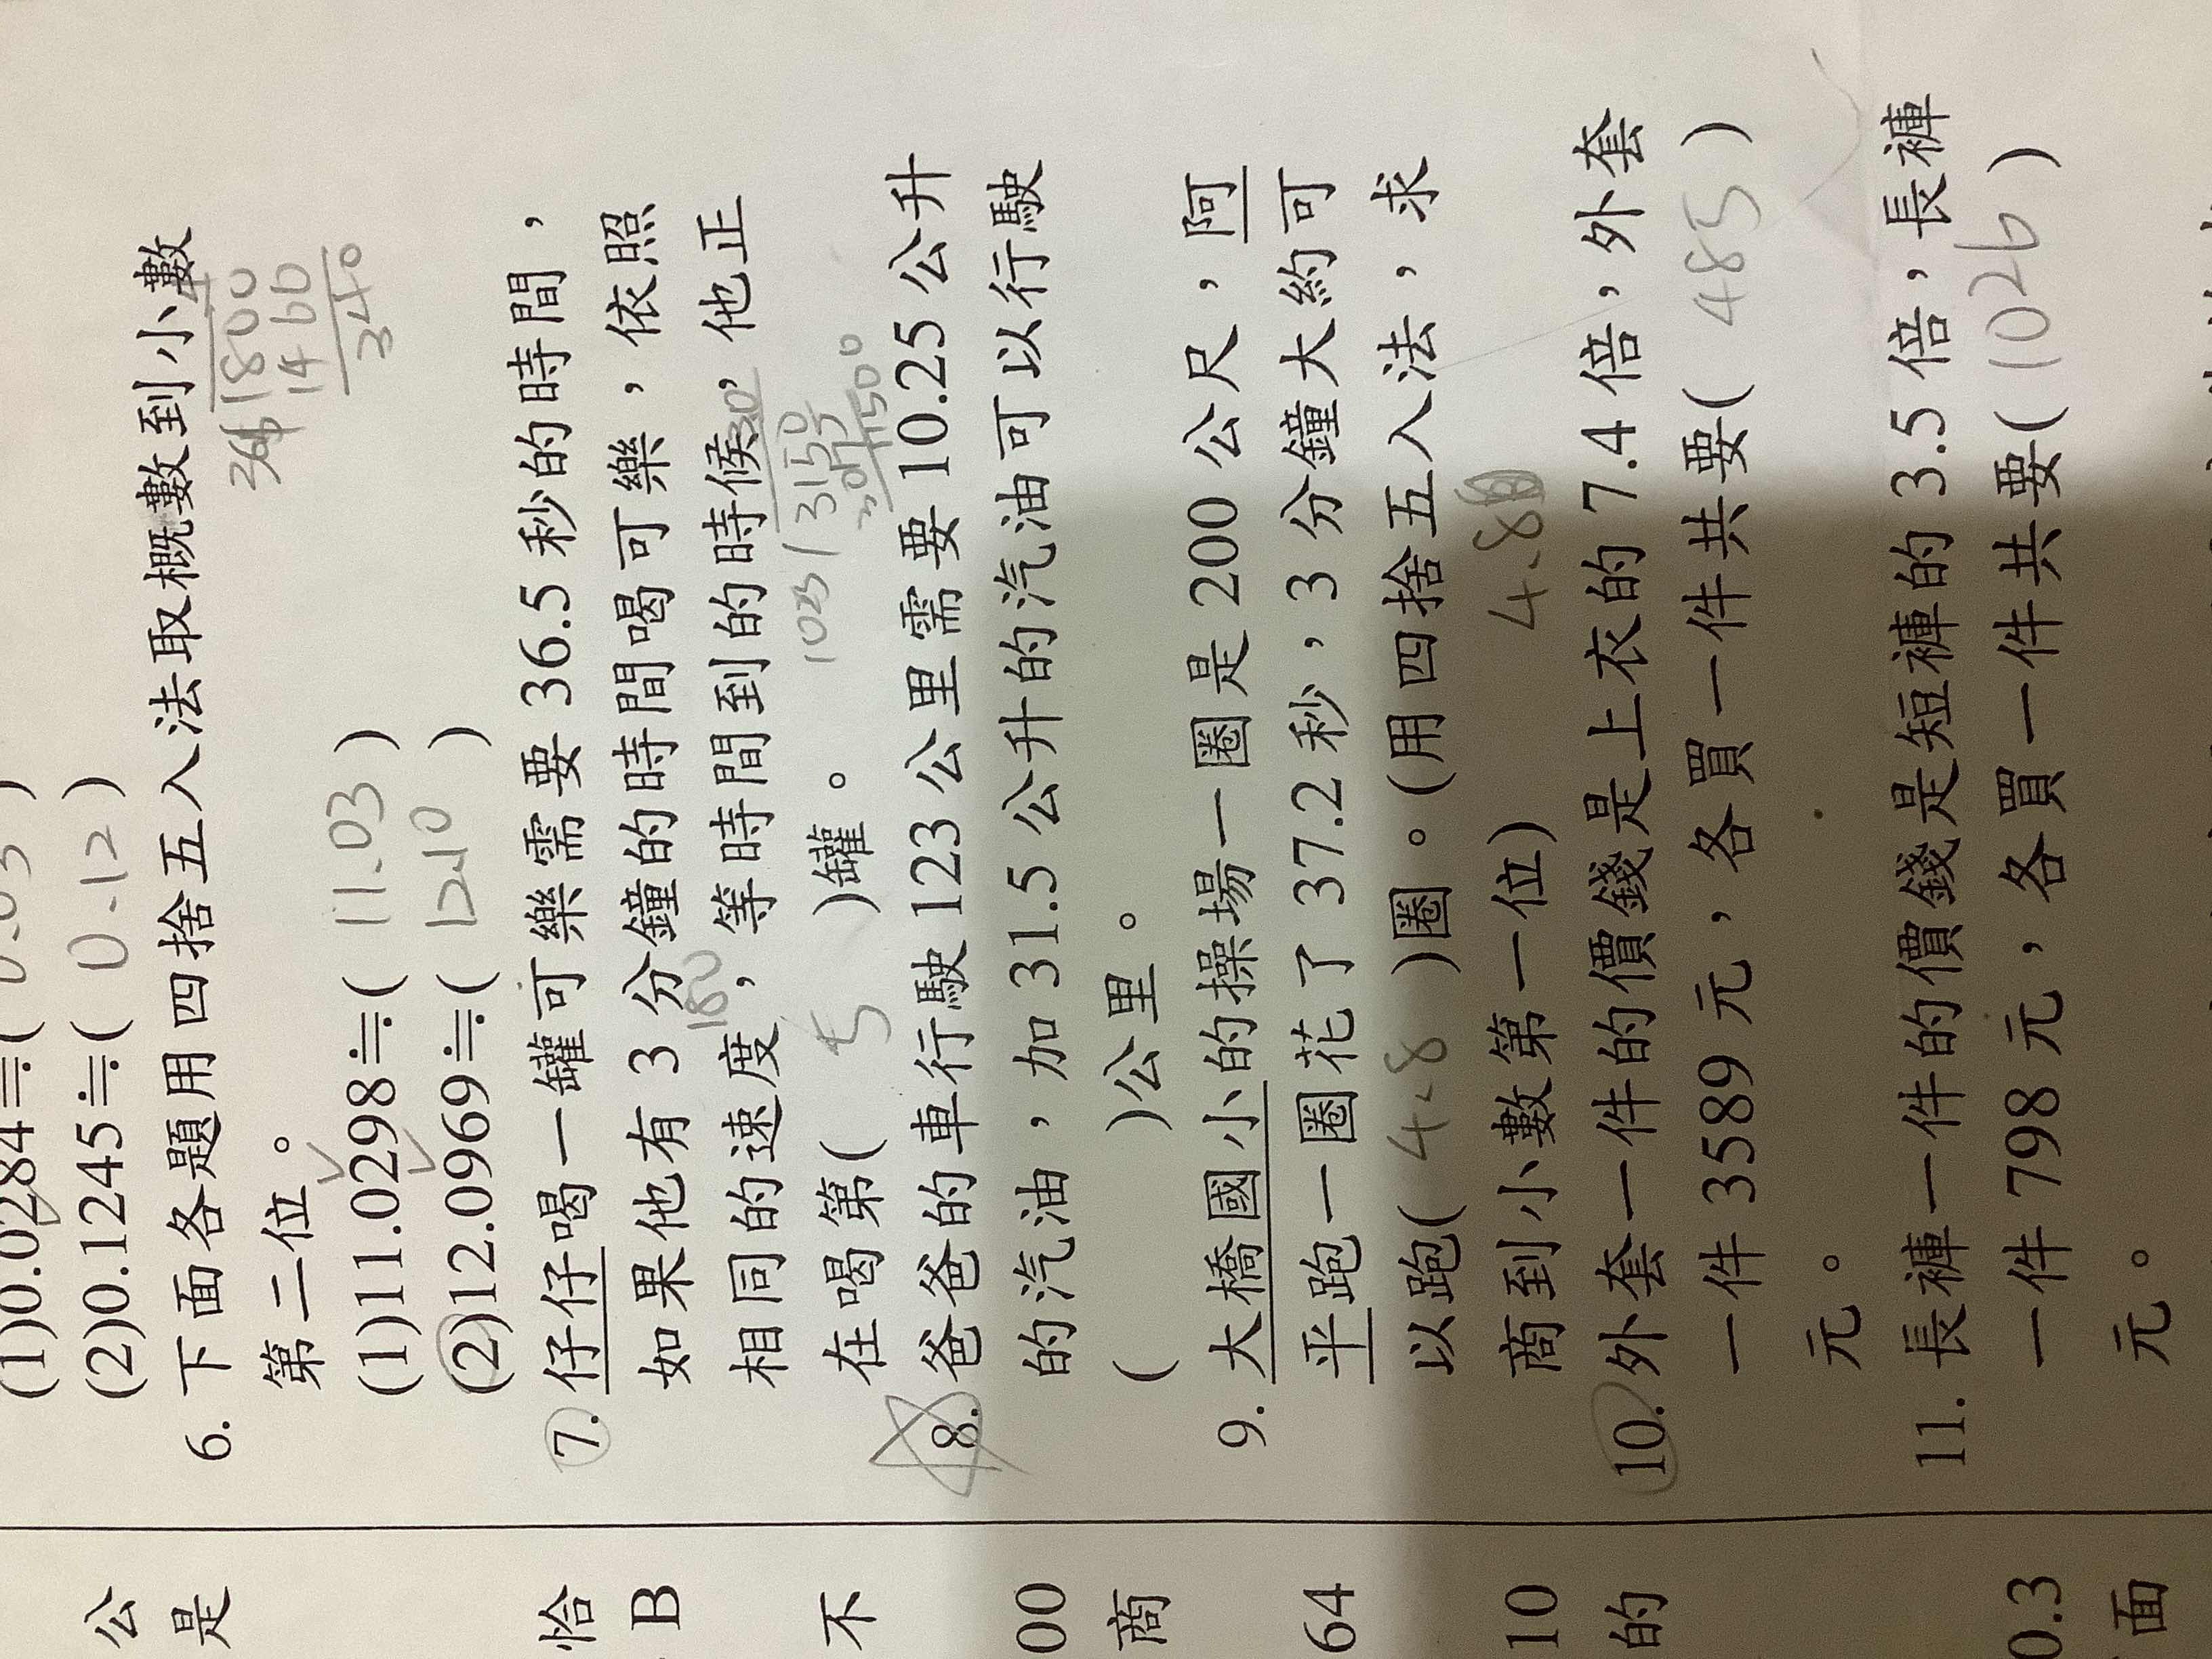 (1)0.0284≒(0.03)
(2)0.1245≒(0.12)
6. 下面各題用四捨五入法取概數到小數
第二位。
(1)11.0298≒(11.03)
(2)12.0969≒(12.10)
1800
1460
340
7. 仔仔喝一罐可樂需要 36.5 秒的時間，
如果他有 3 分鐘的時間喝可樂，依照
180
相同的速度，等時間到的時候，他正
在喝第(5)罐。
1025 3150
8. 爸爸的車行駛 123 公里需要 10.25 公升
的汽油，加 31.5 公升的汽油可以行駛
( )公里。
9. 大橋國小的操場一圈是 200 公尺，阿
平跑一圈花了 37.2 秒，3 分鐘大約可
以跑(4.8)圈。(用四捨五入法，求
商到小數第一位) 4.8
10. 外套一件的價錢是上衣的 7.4 倍，外套
一件 3589 元，各買一件共要(485)
元。
11. 長褲一件的價錢是短褲的 3.5 倍，長褲
一件 798 元，各買一件共要(1026)
元。
公
是
恰
B
不
00
商
64
10
的
0.3
面